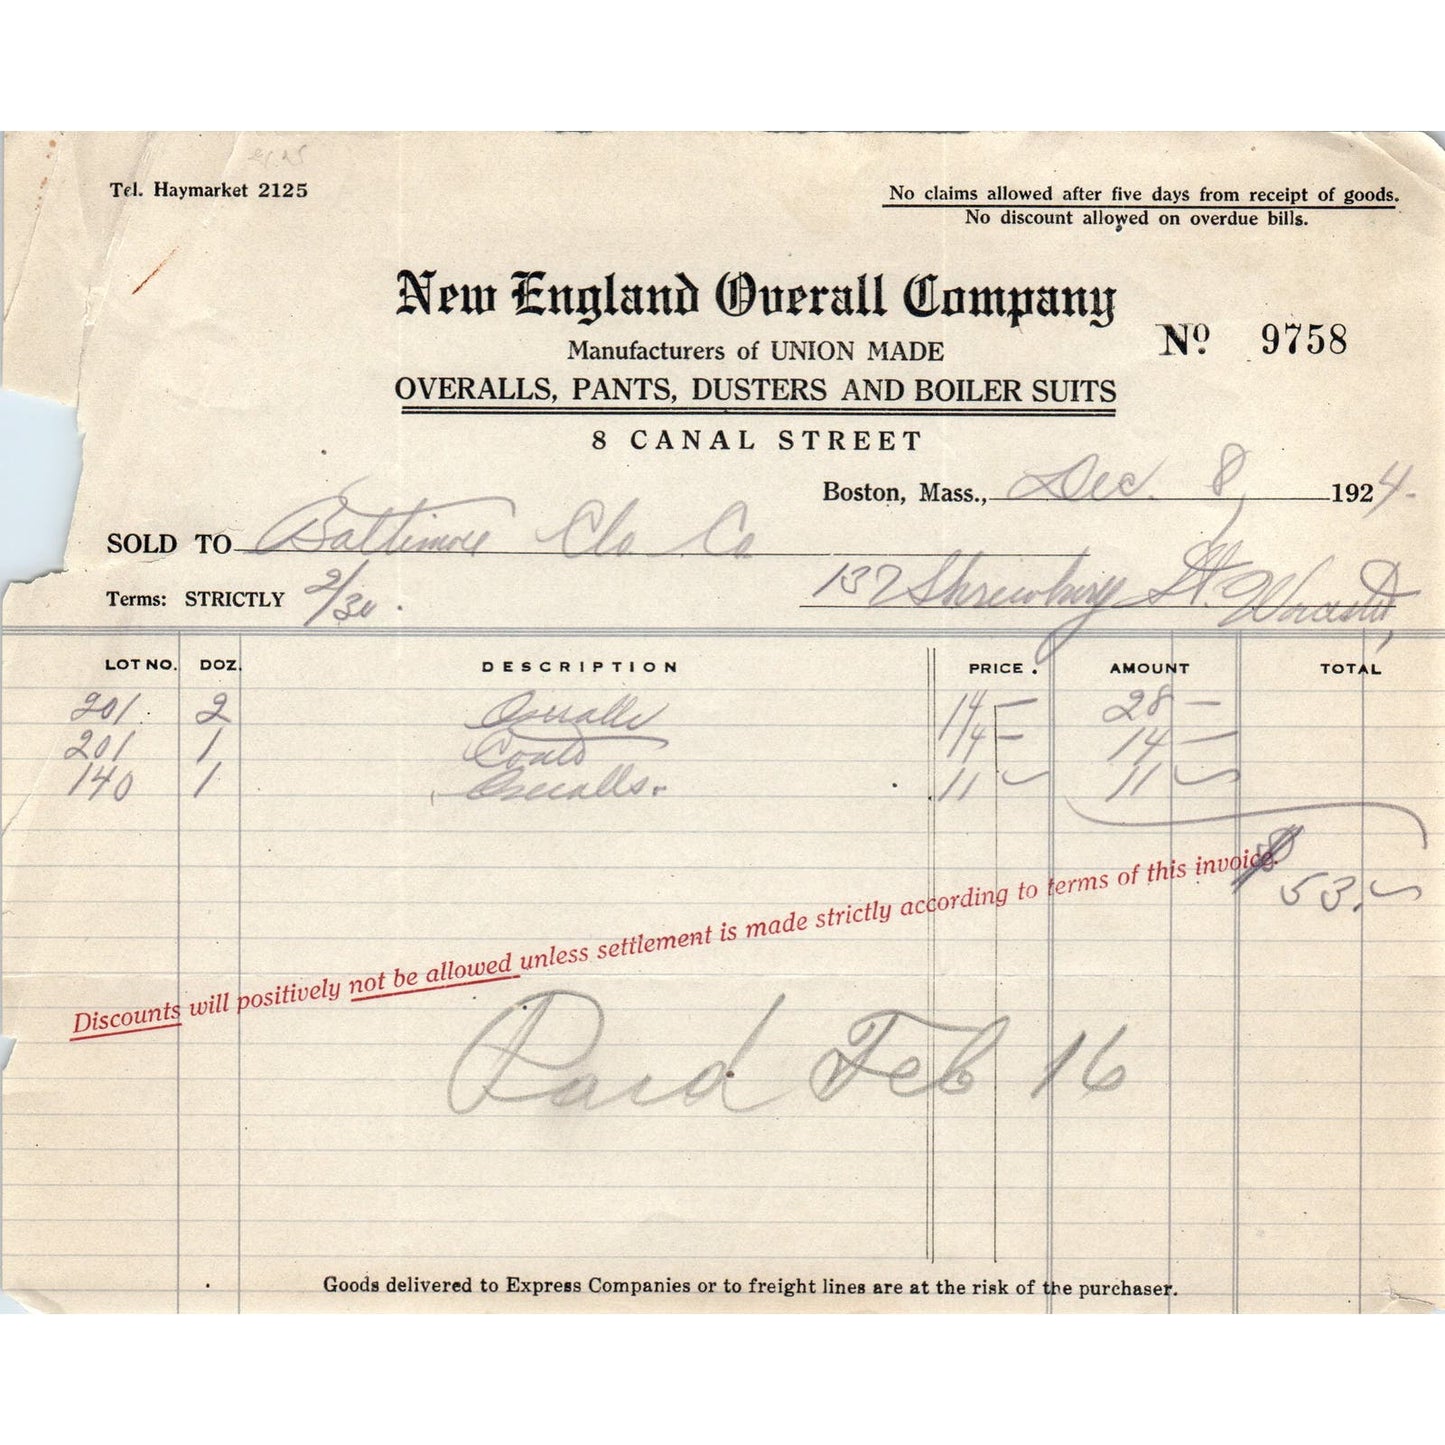 Tel. Haymarket 2125
No claims allowed after five days from receipt of goods.
No discount allowed on overdue bills.
New England Overall Company
Nº 9758
Manufacturers of UNION MADE
OVERALLS, PANTS, DUSTERS AND BOILER SUITS
8 CANAL STREET
Boston, Mass., Dec. 8, 1924.
SOLD TO Baltimore Clo Co
Terms: STRICTLY 2/30. 137 Shrewbury St. Worcester,
LOT NO. DOZ. DESCRIPTION PRICE. AMOUNT TOTAL
201. 2 Overalls 14 – 28 –
201 1 Coats 14 – 14 –
140 1 Overalls. 11 – 11 –
$ 53.–
Discounts will positively not be allowed unless settlement is made strictly according to terms of this invoice.
Paid Feb 16
Goods delivered to Express Companies or to freight lines are at the risk of the purchaser.